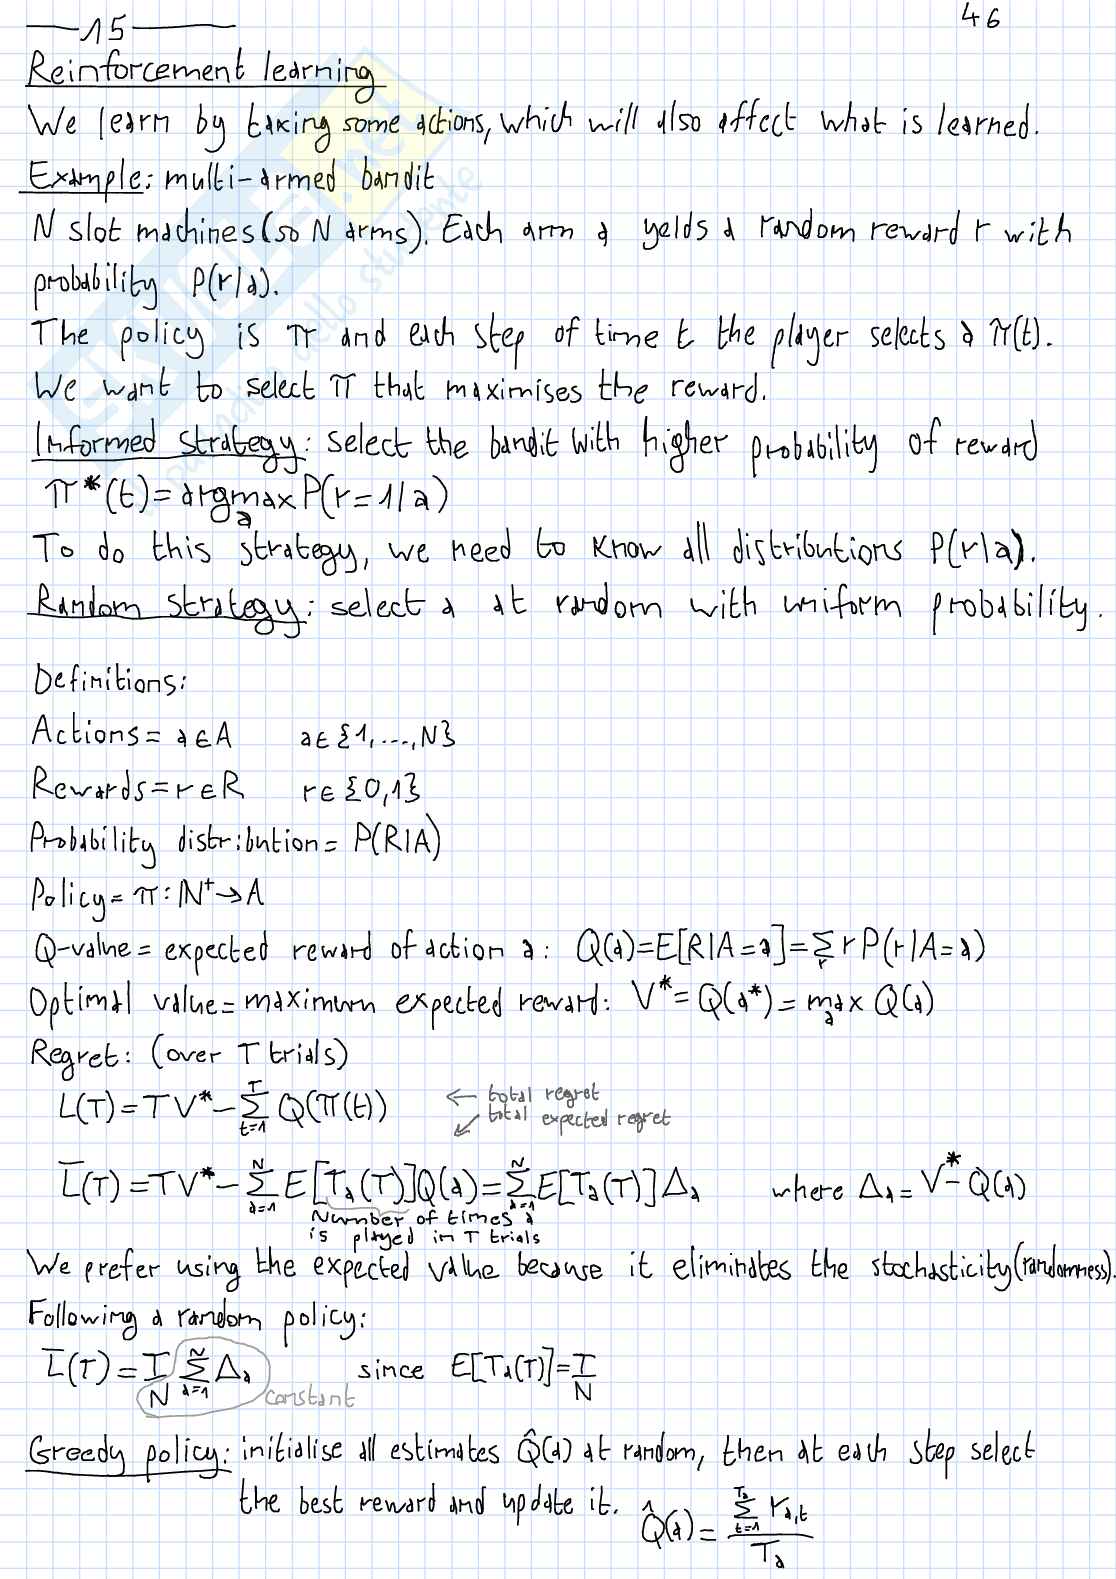 15
46
Reinforcement learning
We learn by taking some actions, which will also affect what is learned.
Example: multi-armed bandit
N slot machines (so N arms). Each arm a yelds a random reward r with
probability P(r|a).
The policy is π and each step of time t the player selects a π(t).
We want to select π that maximises the reward.
Informed strategy: select the bandit with higher probability of reward
π*(t)=argmax P(r=1/a)
a
To do this strategy, we need to know all distributions P(r|a).
Random strategy: select a at random with uniform probability.
Definitions:
Actions = a∈A a∈{1,...,N}
Rewards = r∈R r∈{0,1}
Probability distribution = P(R|A)
Policy = π: N⁺→A
Q-value = expected reward of action a: Q(a)=E[R|A=a]=∑_r r P(r|A=a)
Optimal value = maximum expected reward: V*=Q(a*)=max_a Q(a)
Regret: (over T trials)
L(T)=TV*-∑_{t=1}^{T} Q(π(t)) ← total regret
↙ total expected regret
L̅(T)=TV*-∑_{a=1}^{N} E[T_a(T)]Q(a)=∑_{a=1}^{N} E[T_a(T)]Δ_a where Δ_a=V*-Q(a)
Number of times a
is played in T trials
We prefer using the expected value because it eliminates the stochasticity (randomness).
Following a random policy:
L̅(T)=T/N ∑_{a=1}^{N} Δ_a since E[T_a(T)]=T/N
constant
Greedy policy: initialise all estimates Q̂(a) at random, then at each step select
the best reward and update it. Q̂(a)=∑_{t=1}^{T_a} r_{a,t}/T_a
SKUOLA.net
paradiso dello studente